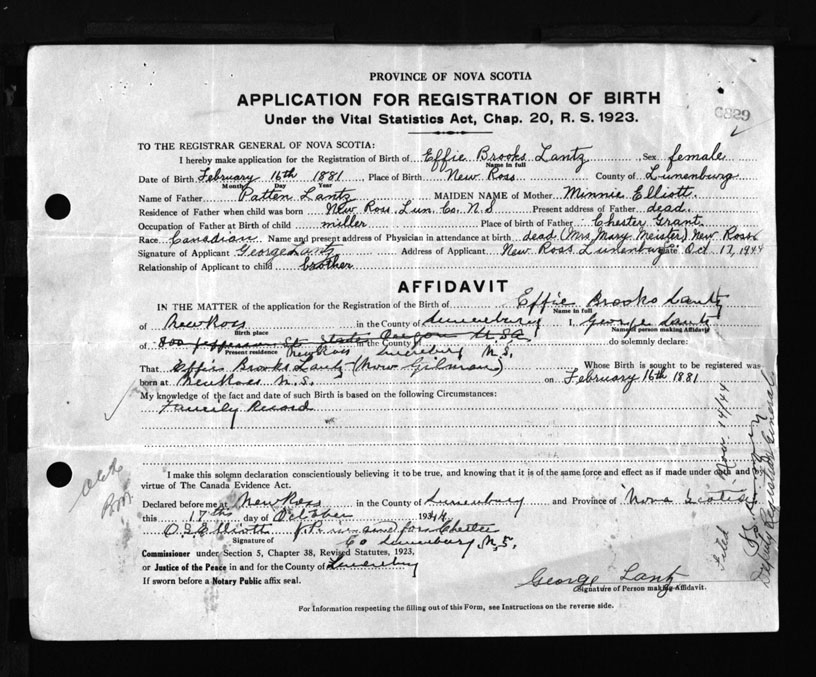 PROVINCE OF NOVA SCOTIA
APPLICATION FOR REGISTRATION OF BIRTH
6829
Under the Vital Statistics Act, Chap. 20, R. S. 1923.
TO THE REGISTRAR GENERAL OF NOVA SCOTIA:
I hereby make application for the Registration of Birth of Effie Brooks Lantz, Sex female
Name in full
Date of Birth February 16th 1881, Place of Birth New Ross County of Lunenburg
Month Day Year
Name of Father Patten Lantz MAIDEN NAME of Mother Minnie Elliott
Residence of Father when child was born New Ross Lun. Co. N.S Present address of Father dead
Occupation of Father at Birth of child miller Place of birth of Father Chester Grant
Race Canadian Name and present address of Physician in attendance at birth dead (Mrs Mary Meister) New Ross
Signature of Applicant George Lantz Address of Applicant New Ross Lunenburg Date Oct 17, 1944
Relationship of Applicant to child brother
AFFIDAVIT
IN THE MATTER of the application for the Registration of the Birth of Effie Brooks Lantz
Name in full
of New Ross in the County of Lunenburg I, George Lantz
Birth place Name of person making Affidavit
of 800 Jefferson St State Oregon USA in the County of do solemnly declare:
Present residence New Ross Lunenburg N.S.
That Effie Brooks Lantz (now Gilman) Whose Birth is sought to be registered was
born at New Ross N.S. on February 16th 1881
My knowledge of the fact and date of such Birth is based on the following Circumstances:
Family Record
I make this solemn declaration conscientiously believing it to be true, and knowing that it is of the same force and effect as if made under oath and
virtue of The Canada Evidence Act.
Declared before me at New Ross in the County of Lunenburg and Province of Nova Scotia
this 17th day of October 1944
O S Elliott J P in and for Chester
Signature of Co Lunenburg N.S.
Commissioner under Section 5, Chapter 38, Revised Statutes, 1923,
or Justice of the Peace in and for the County of Lunenburg
If sworn before a Notary Public affix seal.
George Lantz
Signature of Person making Affidavit.
For Information respecting the filling out of this Form, see Instructions on the reverse side.
Filed Nov 14/44
Deputy Registrar General